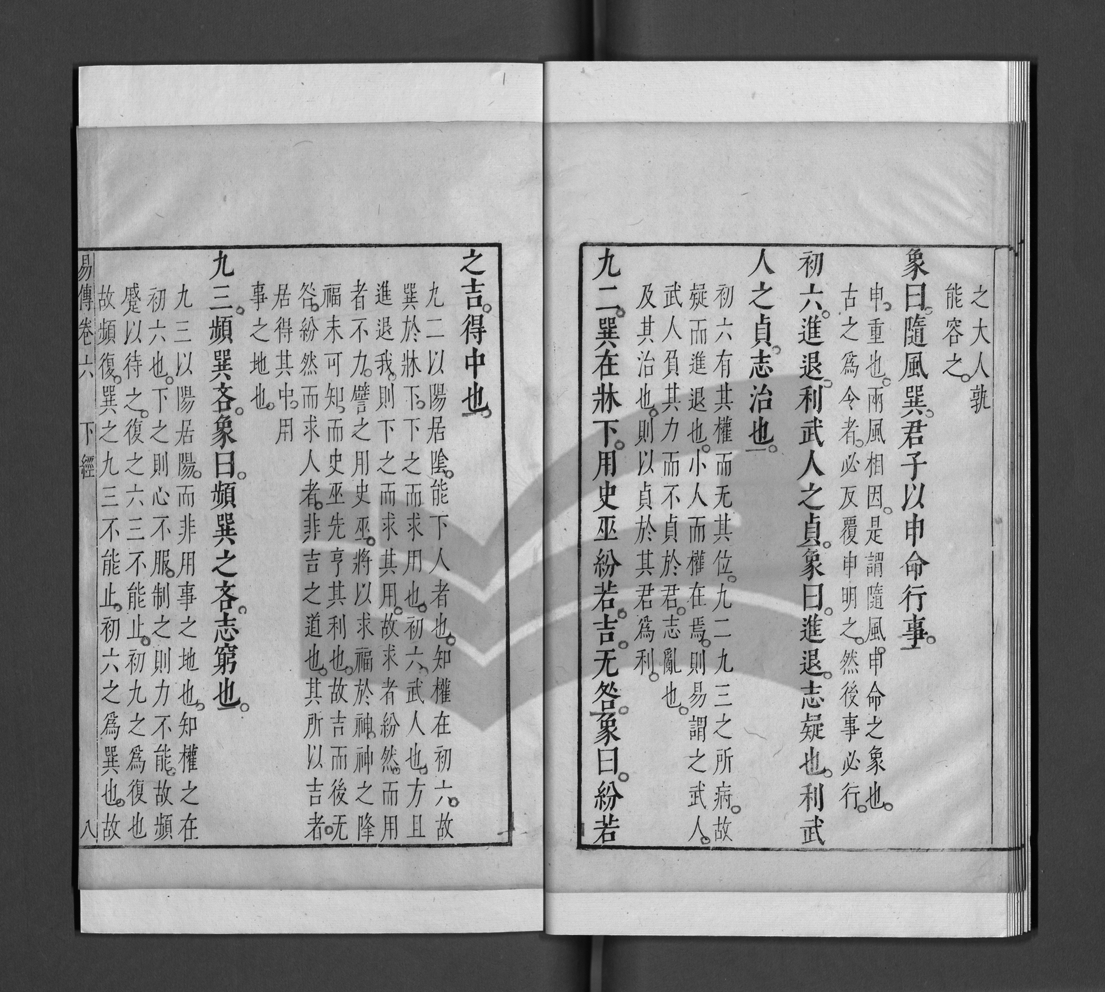 之大人孰
能容之。
象曰。隨風巽。君子以申命行事。
申。重也。兩風相因。是謂隨風。申命之象也。
古之爲令者。必反覆申明之。然後事必行。
初六。進退。利武人之貞。象曰。進退。志疑也。利武
人之貞。志治也。
初六有其權而无其位。九二九三之所病。故
疑而進退也。小人而權在焉。則易謂之武人。
武人負其力而不貞於君。志亂也。
及其治也。則以貞於其君爲利。
九二。巽在牀下。用史巫紛若。吉。无咎。象曰。紛若
之吉。得中也。
九二以陽居陰。能下人者也。知權在初六。故
巽於牀下。下之而求用也。初六武人也。方且
進退。我則下之而求其用。故求者紛然。而用
者不力。譬之用史巫。將以求福於神。神之降
福未可知。而史巫先亨其利也。故吉而後无
咎。紛然而求人者。非吉之道也。其所以吉者。
居得其中。用
事之地也。
九三。頻巽。吝。象曰。頻巽之吝。志窮也。
九三以陽居陽。而非用事之地也。知權之在
初六也。下之則心不服。制之則力不能。故頻
蹙以待之。復之六三不能止。初九之爲復也。
故頻復。巽之九三不能止。初六之爲巽也。故
易傳卷六 下經 八